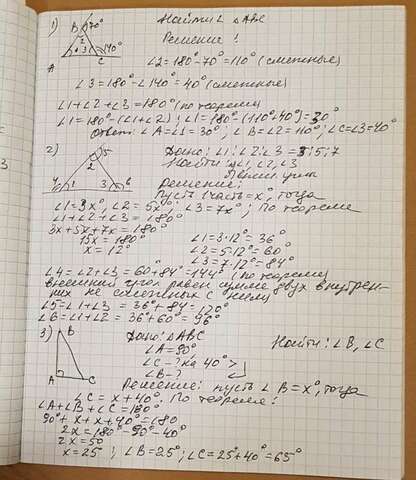 1) Найти ∠ △ABC
B 70°
2
1 3 140°
A C
Решение!
∠2=180°-70°=110° (смежные)
∠3=180°-∠140°=40° (смежные)
∠1+∠2+∠3=180° (по теореме)
∠1=180°-(∠1+∠2); ∠1=180°-(110°+40°)=30°
Ответ: ∠A=∠1=30°; ∠B=∠2=110°; ∠C=∠3=40°
2) Дано: ∠1:∠2:∠3=3:5:7
5
2
4 1 3 6
Найти: ∠1, ∠2, ∠3
Решение:
Пусть 1 часть=x°, тогда
∠1=3x°, ∠2=5x°; ∠3=7x°; По теореме
∠1+∠2+∠3=180°
3x+5x+7x=180°
15x=180° ∠1=3·12°=36°
x=12° ∠2=5·12°=60°
∠3=7·12°=84°
∠4=∠2+∠3=60°+84°=144° (по теореме
внешний угол равен сумме двух внутрен-
них не смежных с ним)
∠5=∠1+∠3=36°+84°=120°
∠6=∠1+∠2=36°+60°=96°
3) B Дано: △ABC Найти: ∠B, ∠C
∠A=90°
∠C-? на 40°>
∠B-?
A C
Решение: пусть ∠B=x°, тогда
∠C=x+40°. По теореме:
∠A+∠B+∠C=180°
90°+x+x+40°=180
2x=180°-90°-40°
2x=50°
x=25°; ∠B=25°; ∠C=25°+40°=65°